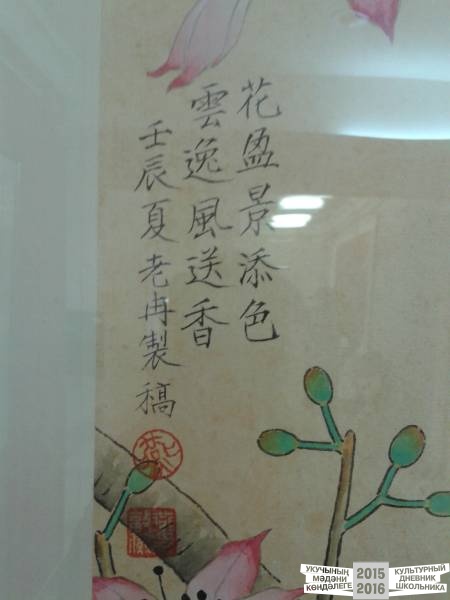 花盈景添色
雲逸風送香
壬辰夏老冉製稿
УКУЧЫНЫҢ
МӘДӘНИ
КӨНДӘЛЕГЕ
2015
2016
КУЛЬТУРНЫЙ
ДНЕВНИК
ШКОЛЬНИКА